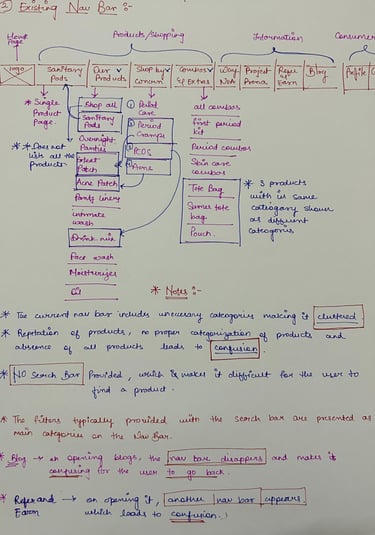 ② Existing Nav Bar :-
Home Page
Products/Shopping
Information
Consumer
Logo
Sanitary Pods
Our Products
Shop by Concern
Combos & Extras
Project
Refer Earn
Blog
Profile
* Single Product Page.
* * Does not list all the products.
Shop all
Sanitary Pads
Overnight Panties
Patch
Acne Patch
Panty Linery
intimate wash
Drink mix
Face wash
Moisturizes
Oil
① Period Care
② Period Cramps
③ PCOS
④ Acne
all combos
first period kit
Period combos
Skin care combos
Tote Bag
tote bag
Pouch.
* 3 products with in same category shown as different categories
* Notes :-
* The current nav bar includes unecessary categories making it cluttered
* Repetation of products, no proper categorization of products and
absence of all products leads to confusion.
* NO Serch Bar Provided, which is makes it difficult for the user to
find a product.
* The filters typically provided with the serch bar are presented as
main categories on the Nav Bar.
* Blog → on opening blogs, the nav bar disappers and makes it
confusing for the user to go back.
* Refer and Earn → on opening it, another nav bar appears
which leads to confusion.